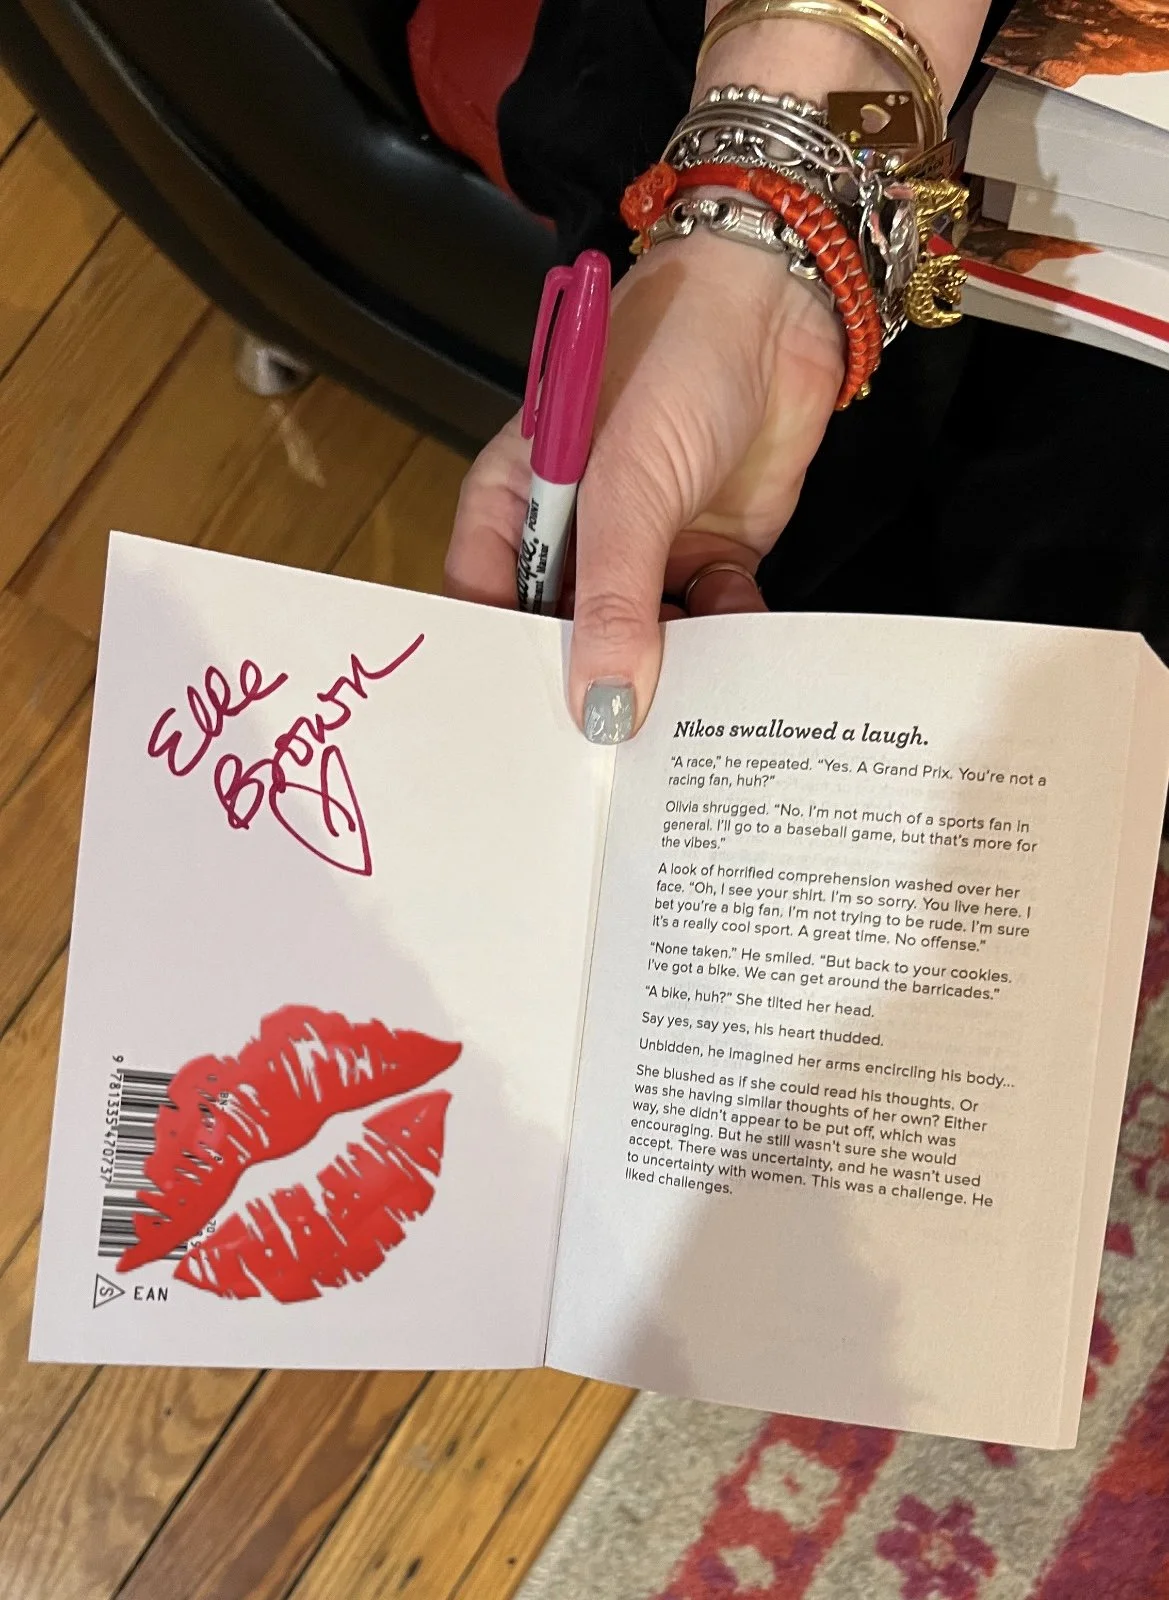 Elle
Brown
9 781335 470737
EAN
POINT
Marker
Nikos swallowed a laugh.
"A race," he repeated. "Yes. A Grand Prix. You're not a
racing fan, huh?"
Olivia shrugged. "No, I'm not much of a sports fan in
general. I'll go to a baseball game, but that's more for
the vibes."
A look of horrified comprehension washed over her
face. "Oh, I see your shirt. I'm so sorry. You live here. I
bet you're a big fan. I'm not trying to be rude. I'm sure
it's a really cool sport. A great time. No offense."
"None taken." He smiled. "But back to your cookies.
I've got a bike. We can get around the barricades."
"A bike, huh?" She tilted her head.
Say yes, say yes, his heart thudded.
Unbidden, he imagined her arms encircling his body...
She blushed as if she could read his thoughts. Or
was she having similar thoughts of her own? Either
way, she didn't appear to be put off, which was
encouraging. But he still wasn't sure she would
accept. There was uncertainty, and he wasn't used
to uncertainty with women. This was a challenge. He
liked challenges.